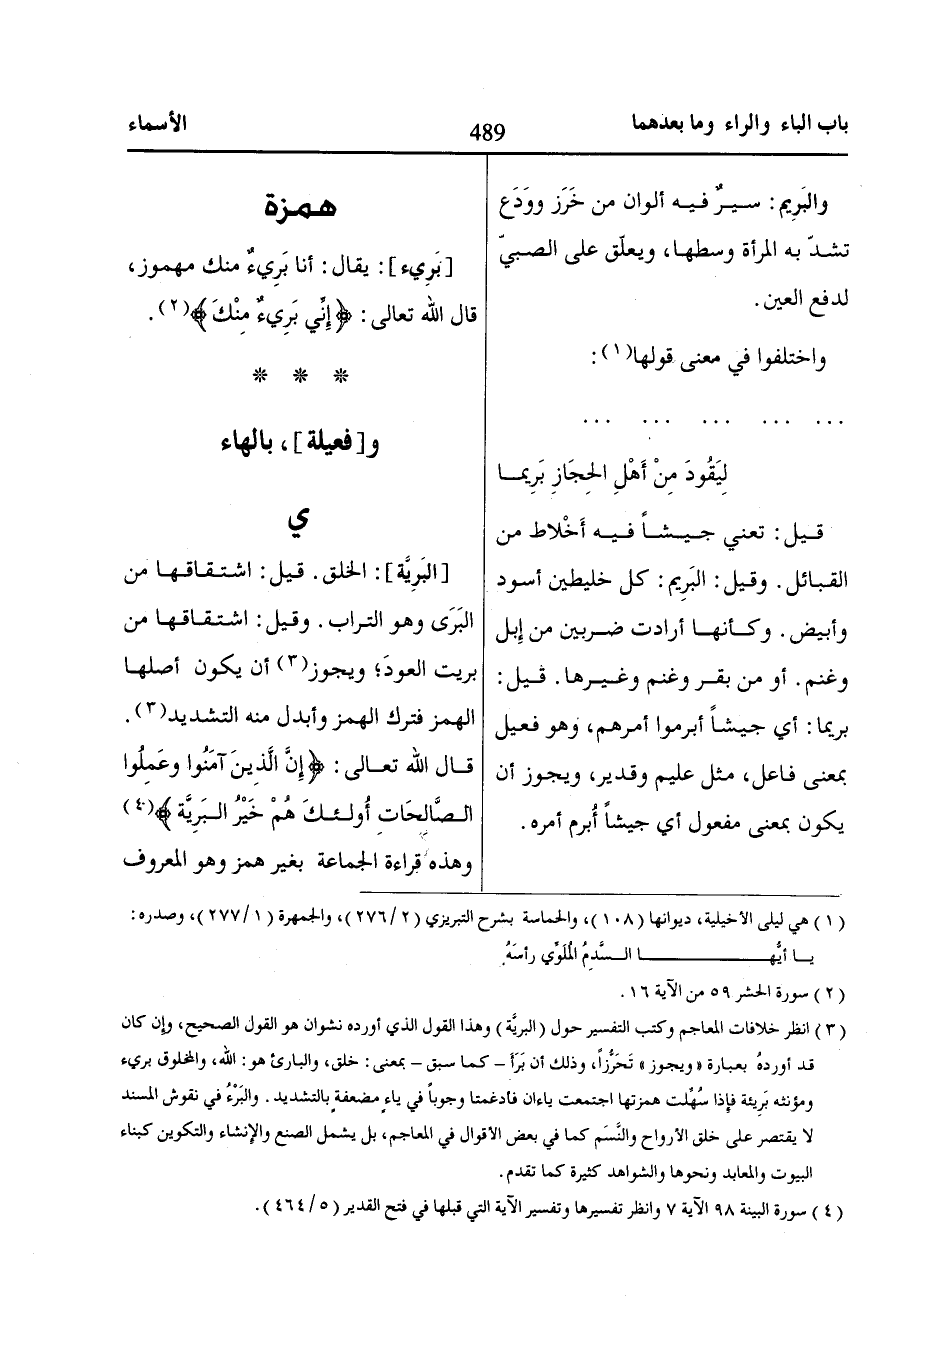 باب الباء والراء وما بعدهما
489
الأسماء
والبَرِيم: سيرٌ فيه ألوان من خَرَز ووَدَع
تشدّ به المرأة وسطها، ويعلّق على الصبيّ
لدفع العين.
واختلفوا في معنى قولها(١):
... ... ... ... ...
لِيَقُودَ مِنْ أَهْلِ الحِجَازِ بَرِيما
قيل: تعني جيشاً فيه أَخْلاط من
القبائل. وقيل: البَرِيم: كل خليطين أسود
وأبيض. وكأنها أرادت ضربين من إبل
وغنم. أو من بقر وغنم وغيرها. قيل:
بريما: أي جيشاً أبرموا أمرهم، وهو فعيل
بمعنى فاعل، مثل عليم وقدير، ويجوز أن
يكون بمعنى مفعول أي جيشاً أُبرم أمره.
همزة
[بَرِيء]: يقال: أنا بَرِيءٌ منك مهموز،
قال الله تعالى: ﴿إِنِّي بَرِيءٌ مِنْكَ﴾(٢).
* * *
و[فعيلة]، بالهاء
ي
[البَرِيَّة]: الخلق. قيل: اشتقاقها من
البَرَى وهو التراب. وقيل: اشتقاقها من
بريت العودَ؛ ويجوز(٣) أن يكون أصلها
الهمز فترك الهمز وأبدل منه التشديد(٣).
قال الله تعالى: ﴿إِنَّ الَّذِينَ آمَنُوا وعَمِلُوا
الصَّالِحَاتِ أُولئِكَ هُمْ خَيْرُ البَرِيَّة﴾(٤)
وهذه قراءة الجماعة بغير همز وهو المعروف
(١) هي ليلى الأخيلية، ديوانها (١٠٨)، والحماسة بشرح التبريزي (٢/٢٧٦)، والجمهرة (١/٢٧٧)، وصدره:
يا أيُّها السَّدِمُ المُلَوِّي رأسَهُ
(٢) سورة الحشر ٥٩ من الآية ١٦.
(٣) انظر خلافات المعاجم وكتب التفسير حول (البريَّة) وهذا القول الذي أورده نشوان هو القول الصحيح، وإن كان
قد أوردهُ بعبارة «ويجوز» تَحَرُّزاً، وذلك أن بَرَأ – كما سبق – بمعنى: خلق، والبارئ هو: الله، والمخلوق بريء
ومؤنثه بَرِيئة فإذا سُهِّلت همزتها اجتمعت ياءان فادغمتا وجوباً في ياءٍ مضعفة بالتشديد. والبَرْءُ في نقوش المسند
لا يقتصر على خلق الأرواح والنَّسَم كما في بعض الأقوال في المعاجم، بل يشمل الصنع والإنشاء والتكوين كبناء
البيوت والمعابد ونحوها والشواهد كثيرة كما تقدم.
(٤) سورة البينة ٩٨ الآية ٧ وانظر تفسيرها وتفسير الآية التي قبلها في فتح القدير (٥/٤٦٤).